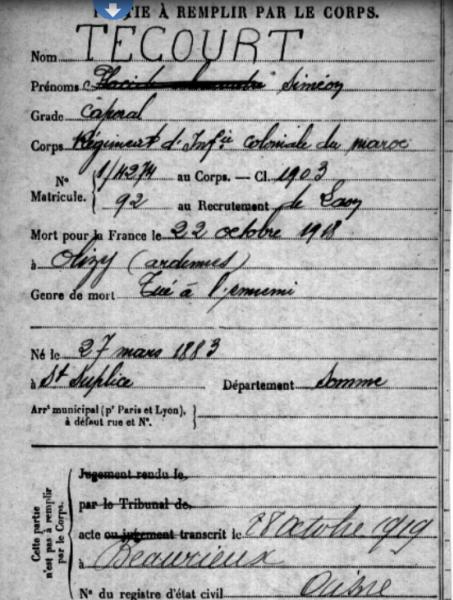 PARTIE À REMPLIR PAR LE CORPS.
Nom TECOURT
Prénoms Placide Siméon
Grade Caporal
Corps Régiment d'Infie coloniale du maroc
No Matricule. 1/4274 au Corps. — Cl. 1903
92 au Recrutement de Laon
Mort pour la France le 22 octobre 1918
à Olizy (ardennes)
Genre de mort Tué à l'ennemi
Né le 27 mars 1883
à St Suplice Département Somme
Arrt municipal (pr Paris et Lyon),
à défaut rue et No.
Cette partie
n'est pas à remplir
par le Corps.
Jugement rendu le
par le Tribunal de
acte ou jugement transcrit le 28 octobre 1919
à Beaurieux
No du registre d'état civil Aisne